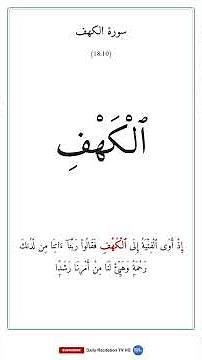 سورة الكهف
(18:10)
ٱلْكَهْفِ
إِذْ أَوَى ٱلْفِتْيَةُ إِلَى ٱلْكَهْفِ فَقَالُوا۟ رَبَّنَآ ءَاتِنَا مِن لَّدُنكَ
رَحْمَةً وَهَيِّئْ لَنَا مِنْ أَمْرِنَا رَشَدًا
SUBSCRIBE Daily Recitation TV HD